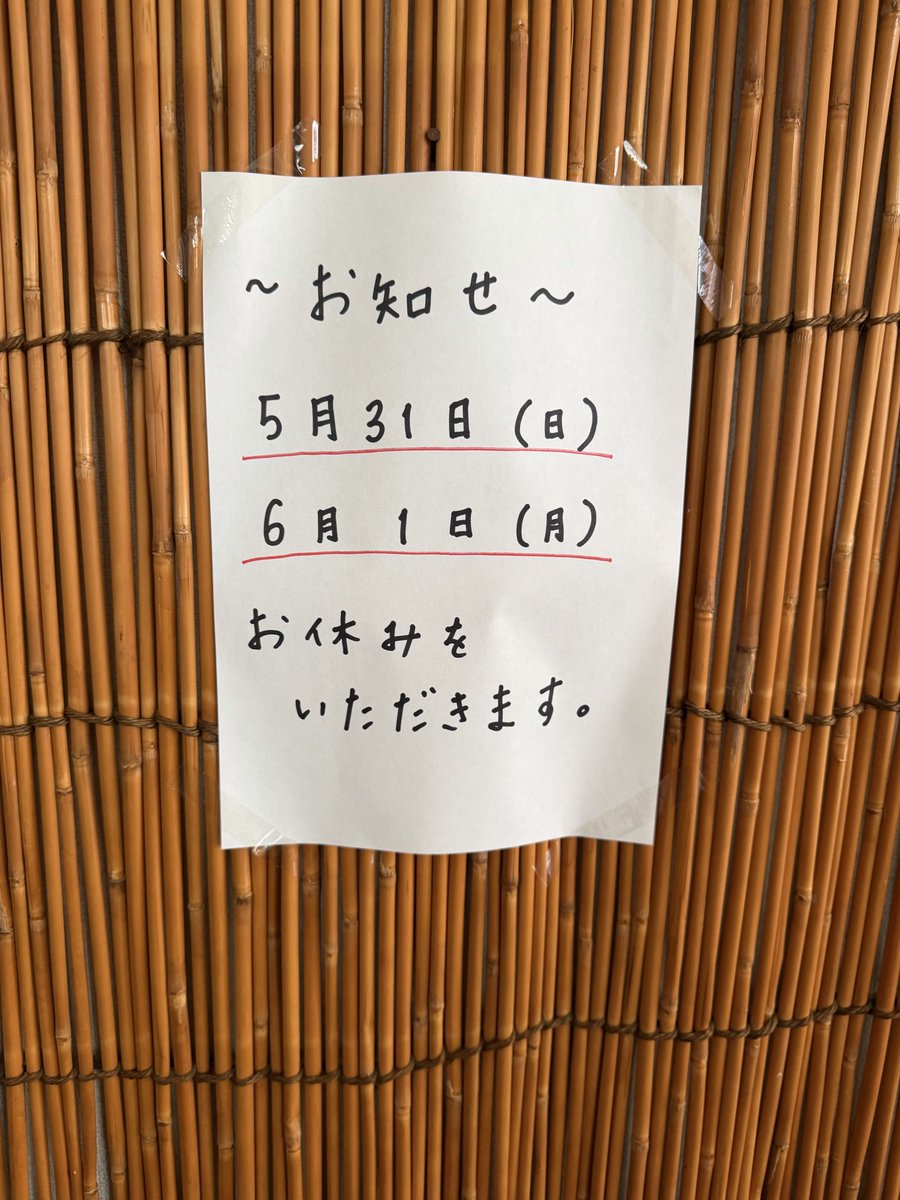 ～お知せ～
5月31日(日)
6月1日(月)
お休みを
いただきます。